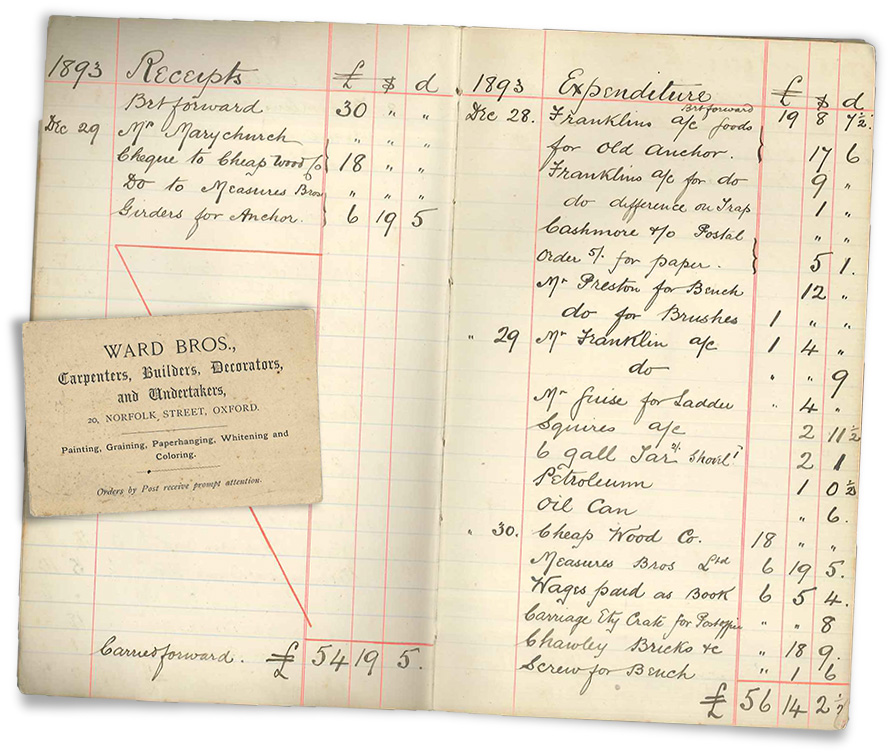 1893 Receipts £ s d
Brt forward 30 " "
Dec 29 Mr Marychurch " " "
Cheque to Cheap Wood Co 18 " "
Do to Measures Bros " " "
Girders for Anchor. 6 19 5
WARD BROS.,
Carpenters, Builders, Decorators,
and Undertakers,
20, NORFOLK STREET, OXFORD.
Painting, Graining, Paperhanging, Whitening and
Coloring.
Orders by Post receive prompt attention.
Carried forward. £ 54 19 5.
1893 Expenditure £ s d
Brt forward
Dec 28. Franklins a/c goods 19 8 7½
for Old Anchor. 17 6
Franklins a/c for do 9 "
do difference on Trap 1 "
Cashmore Postal " "
Order 5/- for paper. 5 1.
Mr Preston for Bench 12 "
do for Brushes 1 " "
" 29 Mr Franklin a/c 1 4 "
do " " 9
Mr Guise for Ladder " 4 "
Squires a/c 2 11½
6 gall Tar 2/- Shovel 1 2 1
Petroleum 1 0½
Oil Can " 6.
" 30. Cheap Wood Co. 18 " "
Measures Bros Ltd 6 19 5.
Wages paid as Book 6 5 4.
Carriage Ety Crate for " " 8
Chawley Bricks &c " 18 9.
Screw for Bench " 1 6
£ 56 14 2½